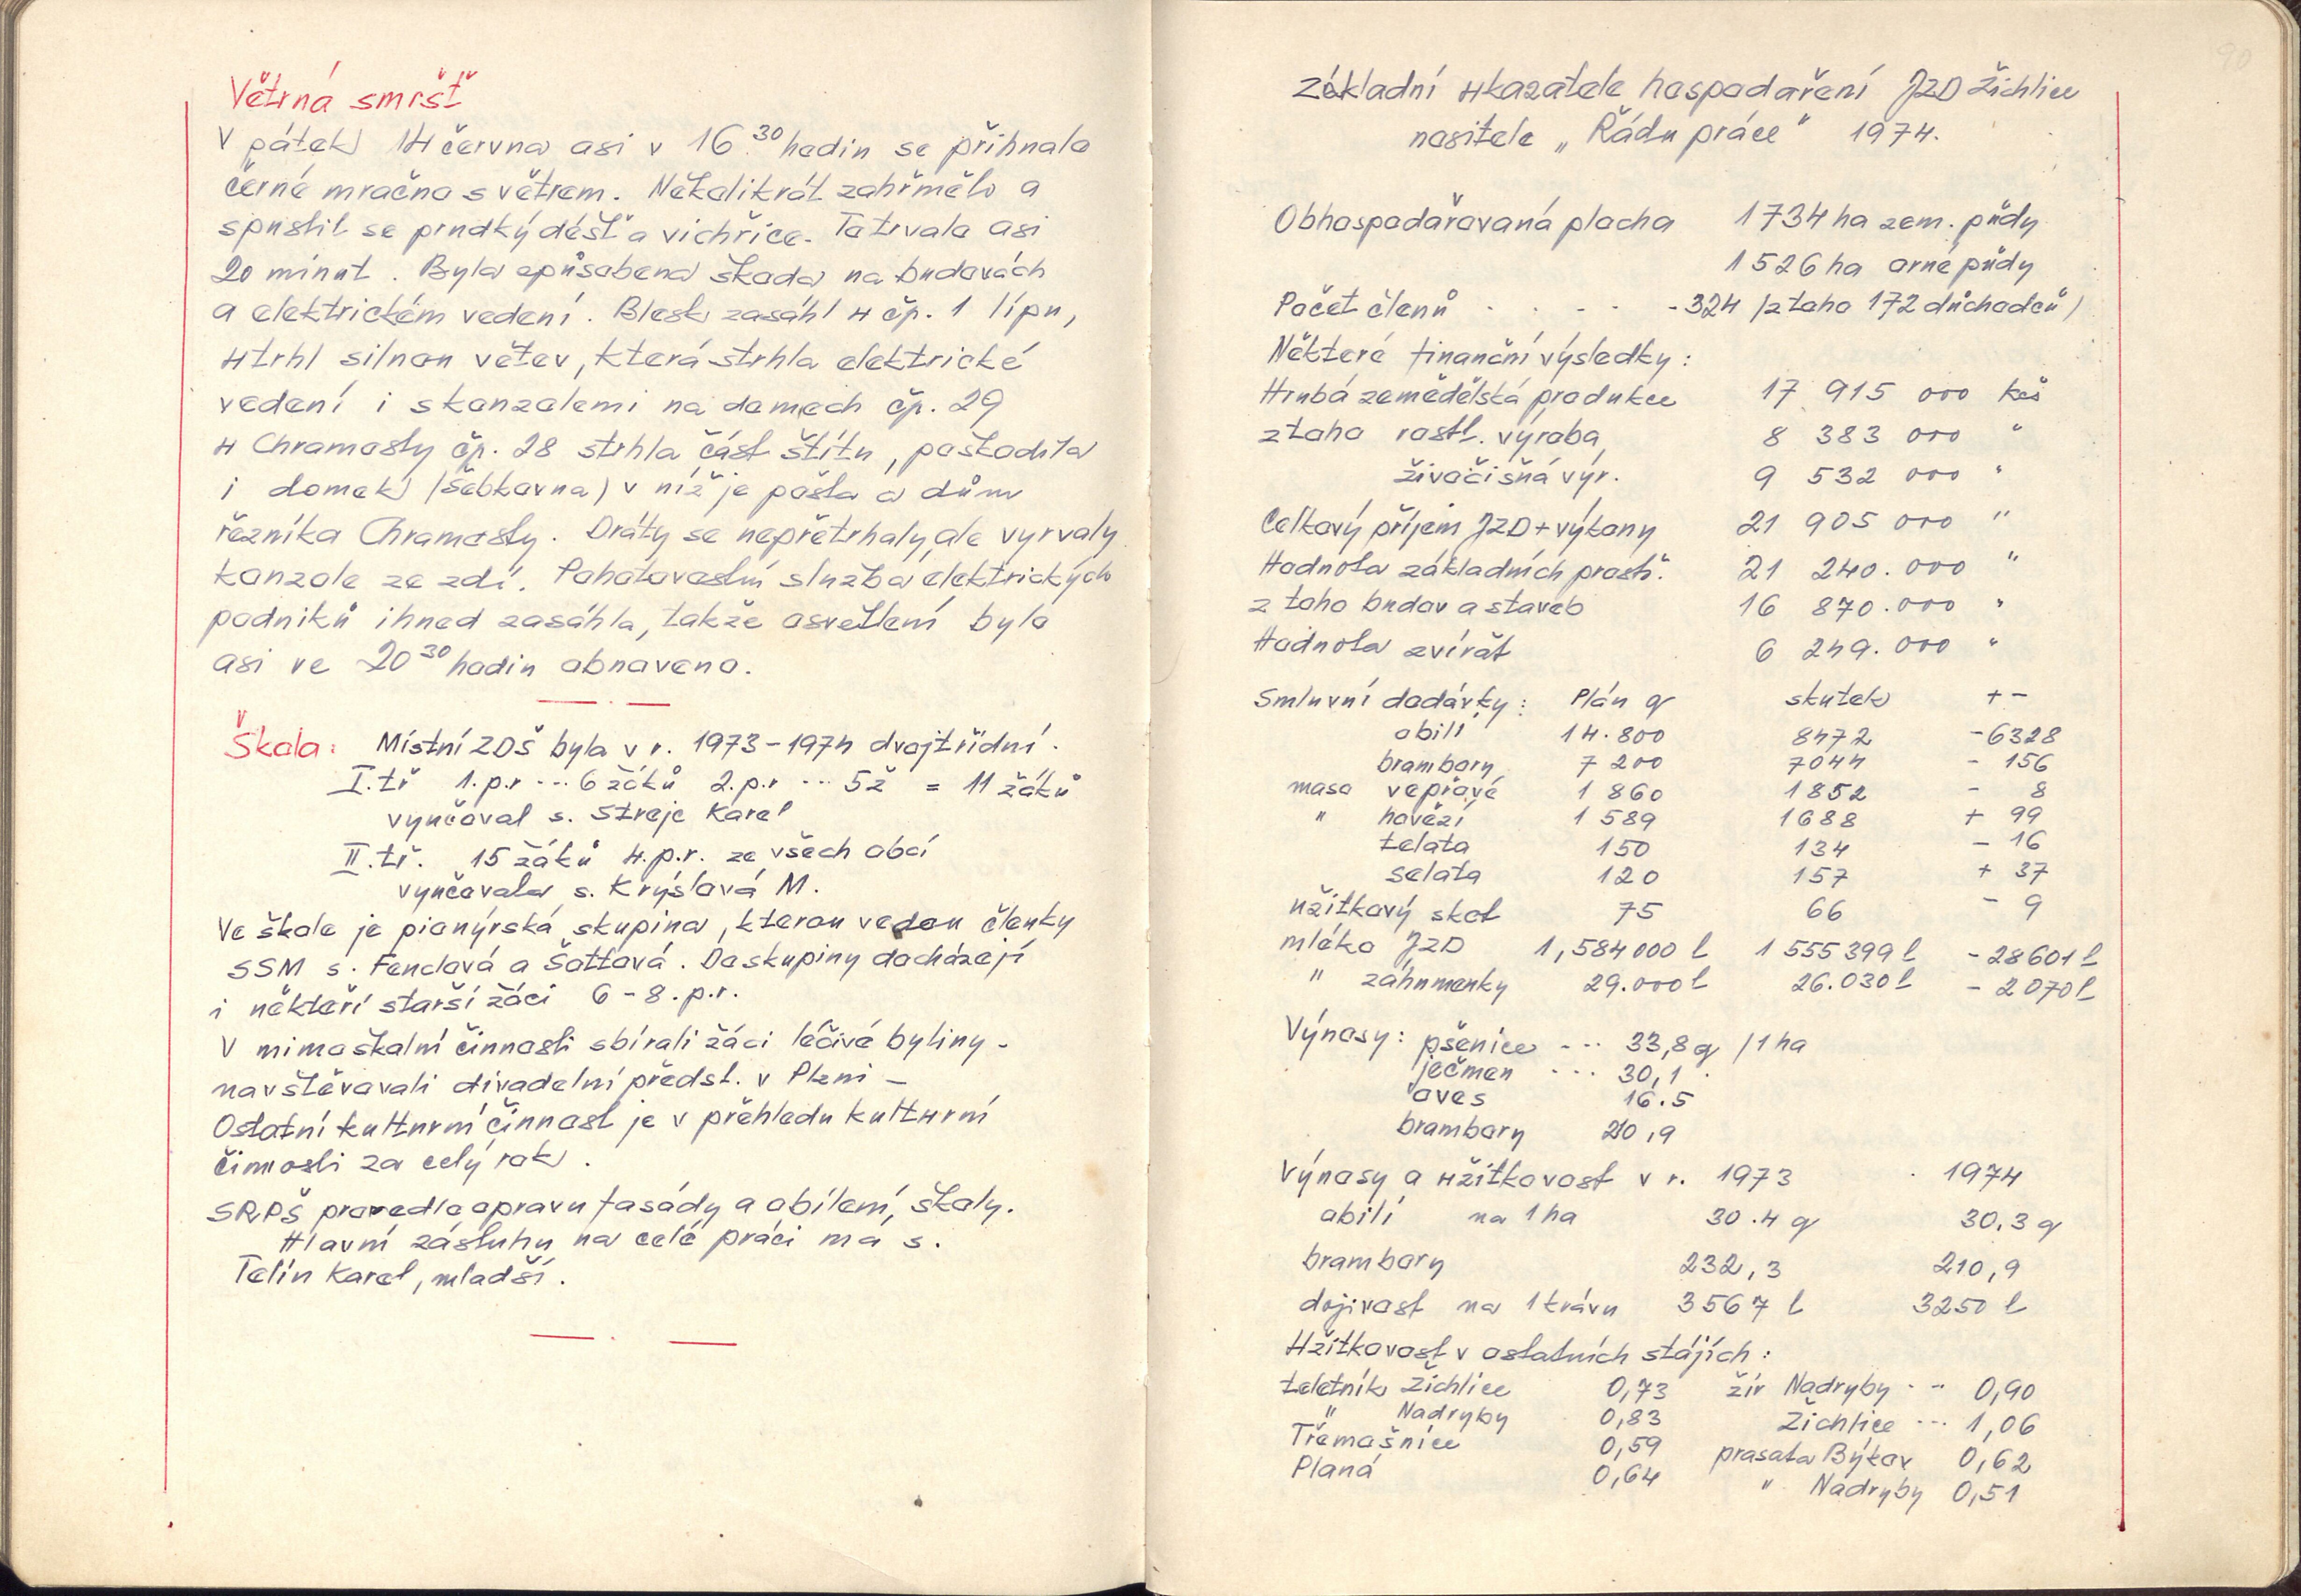 Větrná smršť
V pátek 14 června asi v 16.30 hodin se přihnalo
černé mračno s větrem. Několikrát zahřmělo a
spustil se prudký déšť a vichřice. To trvalo asi
20 minut. Byla způsobena škoda na budovách
a elektrickém vedení. Blesk zasáhl u čp. 1 lípu,
utrhl silnou větev, která strhla elektrické
vedení i s konzolemi na domech čp. 29
u Chramosty čp. 28 strhla část štítu, poškodila
i domek (Šebkovna) v níž je pošta a dům
řezníka Chramosty. Dráty se nepřetrhaly, ale vyrvaly
konzole ze zdí. Pohotovostní služba elektrických
podniků ihned zasáhla, takže osvětlení bylo
asi ve 20 30 hodin obnoveno.
Škola: Místní ZDŠ byla v r. 1973-1974 dvojtřídní.
I.tř 1.p.r ... 6 žáků 2.p.r ... 5ž = 11 žáků
vyučoval s. Streje Karel
II.tř. 15 žáků 4.p.r. ze všech obcí
vyučovala s. Krýslová M.
Ve škole je pionýrská skupina, kterou vedou členky
SSM s. Fenclová a Šottová. Do skupiny docházejí
i někteří starší žáci 6-8.p.r.
V mimoškolní činnosti sbírali žáci léčivé byliny -
navštěvovali divadelní předst. v Plzni -
Ostatní kulturní činnost je v přehledu kulturní
činnosti za celý rok.
SRPŠ provedlo opravu fasády a obílení školy.
Hlavní zásluhu na celé práci má s.
Telín Karel, mladší.
90
Základní ukazatele hospodaření JZD Žichlice
nositele „Řádu práce" 1974.
Obhospodařovaná plocha 1734 ha zem. půdy
1526 ha orné půdy
Počet členů . . - - - 324 /z toho 172 důchodců/
Některé finanční výsledky:
Hrubá zemědělská produkce 17 915 000 Kčs
z toho rostl. výroba 8 383 000 "
živočišná výr. 9 532 000 "
Celkový příjem JZD + výkony 21 905 000 "
Hodnota základních prostř. 21 240.000 "
z toho budov a staveb 16 870.000 "
Hodnota zvířat 6 249.000 "
Smluvní dodávky: Plán q skutek + -
obilí 14.800 8472 -6328
brambory 7 200 7044 - 156
maso vepřové 1 860 1852 - 8
" hovězí 1 589 1688 + 99
telata 150 134 - 16
selata 120 157 + 37
užitkový skot 75 66 - 9
mléko JZD 1,584000 l 1 555 399 l - 28601 l
" záhumenky 29.000 l 26.030 l - 2070 l
Výnosy: pšenice --- 33,8 q /1 ha
ječmen ... 30,1 .
oves 16.5
brambory 210,9
Výnosy a užitkovost v r. 1973 . 1974
obilí na 1 ha 30.4 q 30,3 q
brambory 232,3 210,9
dojivost na 1 krávu 3567 l 3250 l
Užitkovost v ostatních stájích:
teletník Žichlice 0,73 žír Nadryby . - 0,90
" Nadryby 0,83 Žichlice ... 1,06
Třemošnice 0,59 prasata Býkov 0,62
Planá 0,64 " Nadryby 0,51